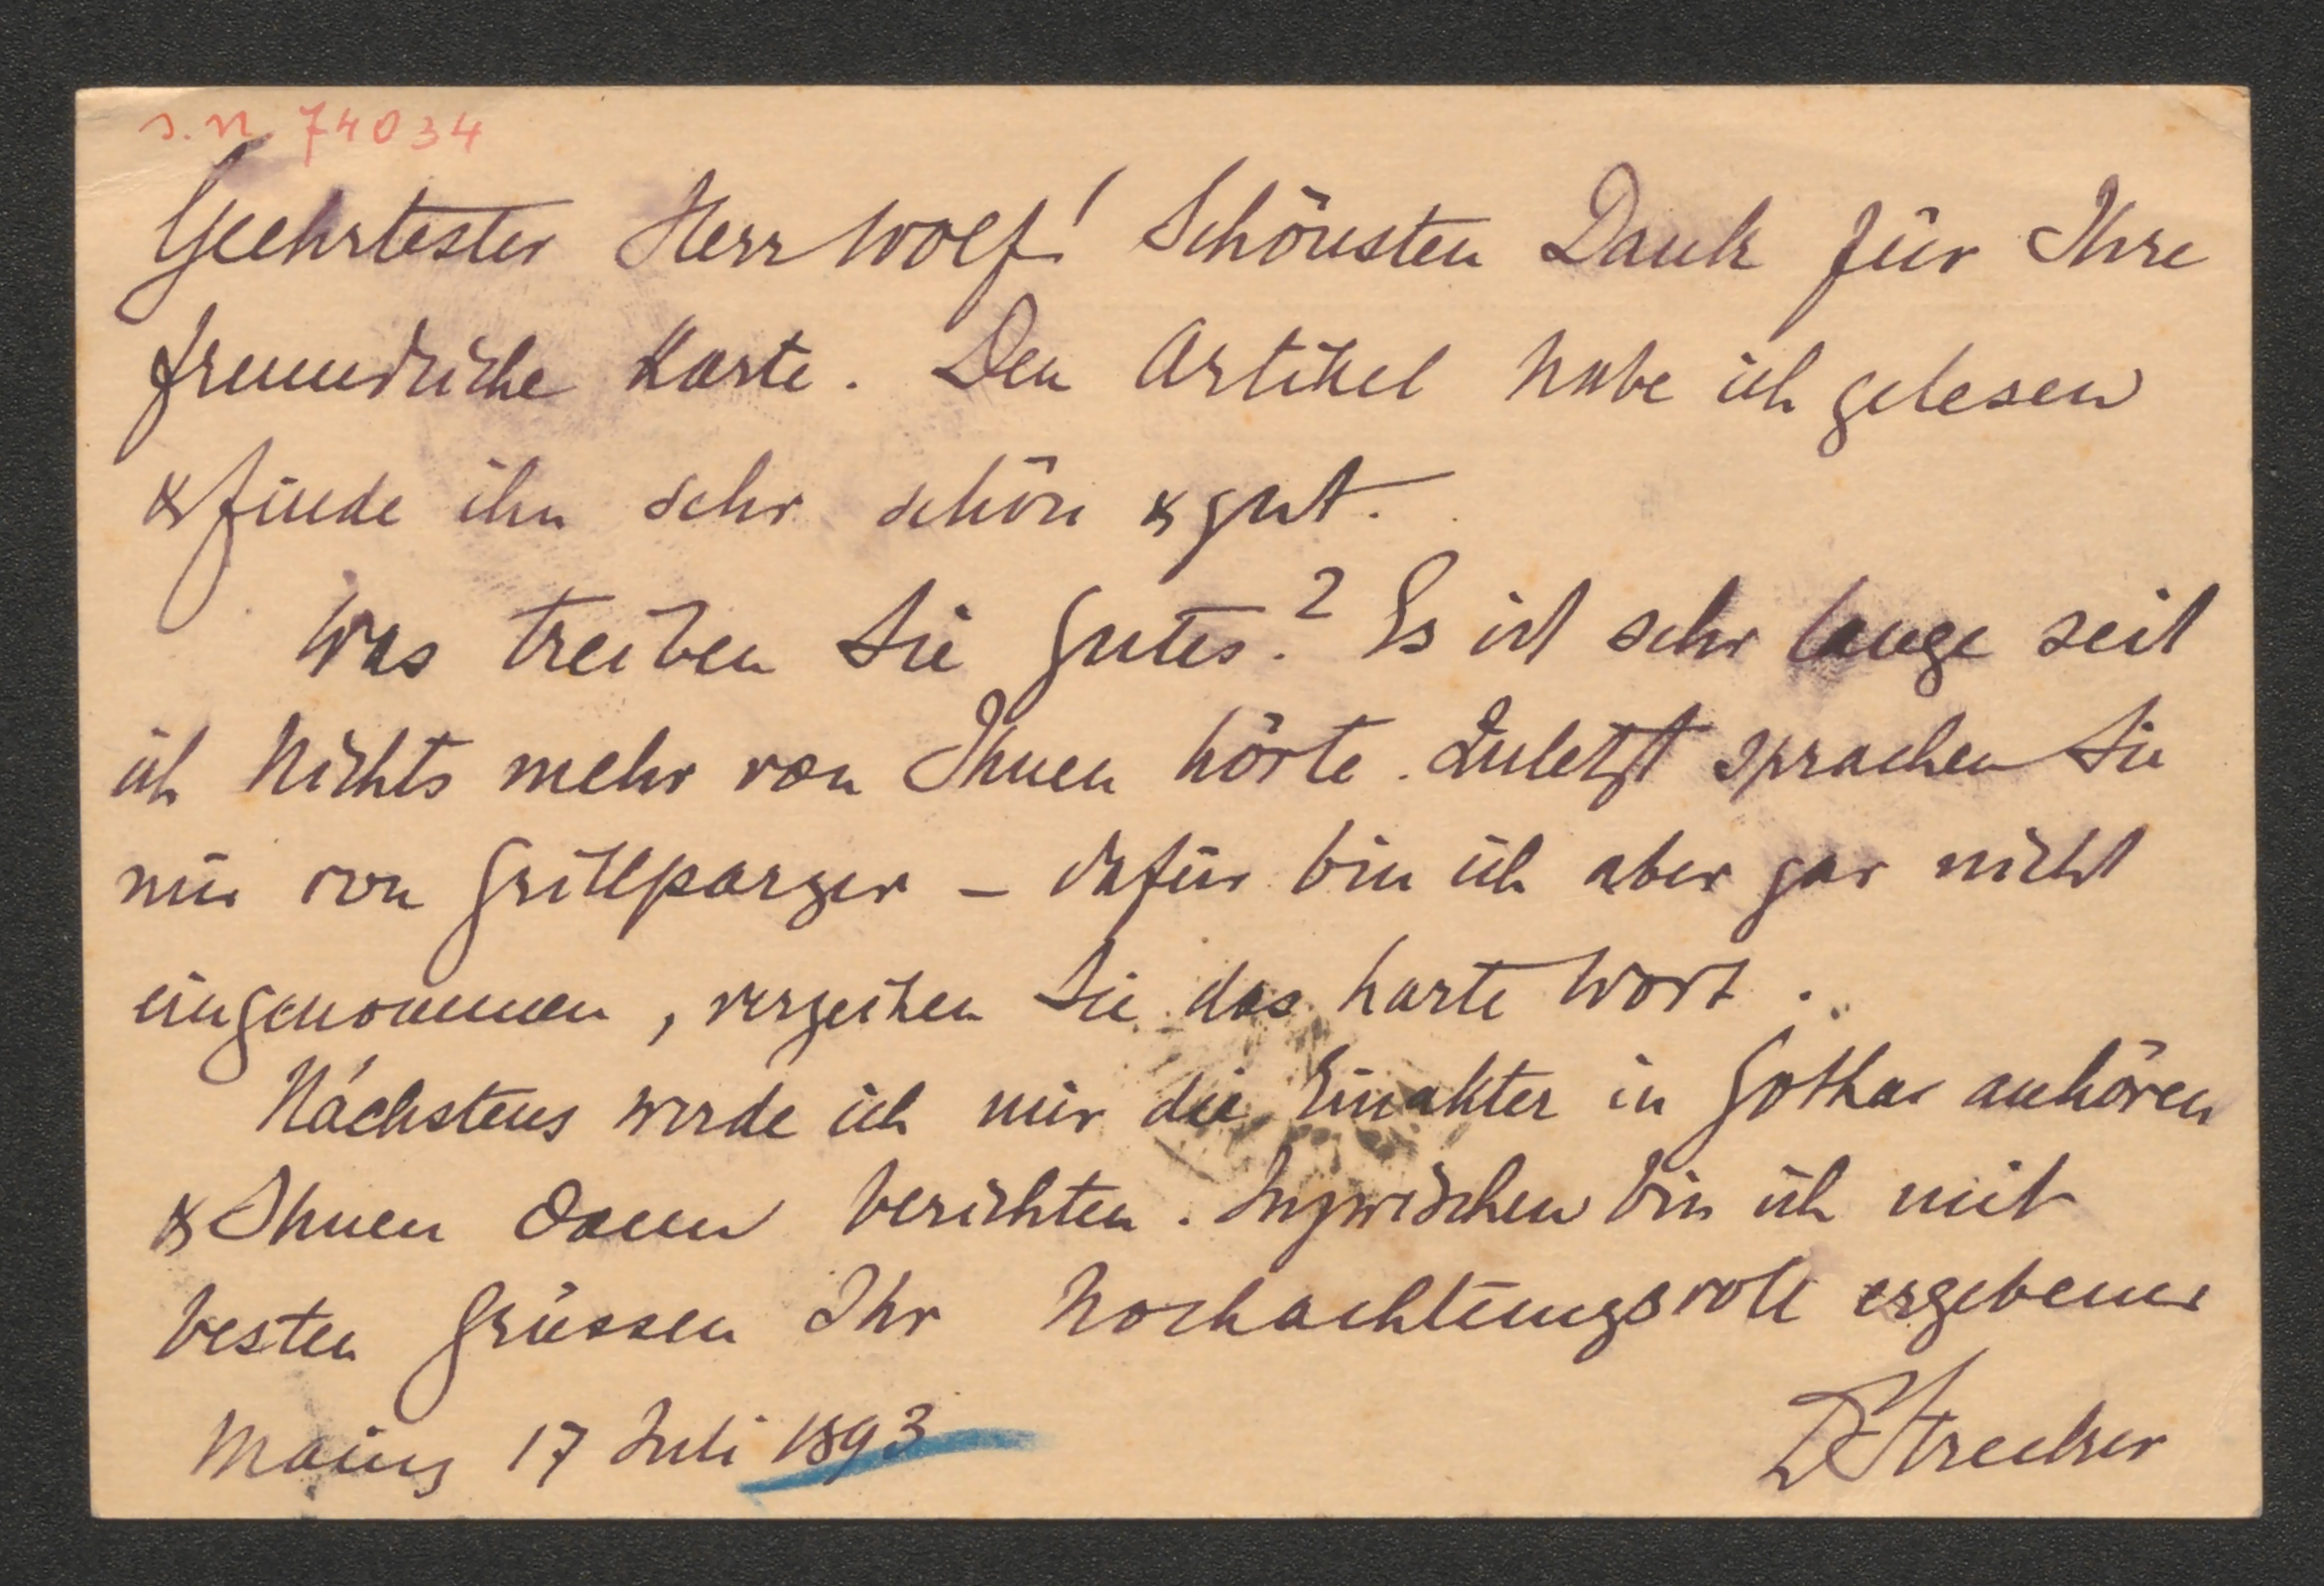 I.N 74034
Geehrtester Herr Wolf! Schönsten Dank für Ihre
freundliche Karte. Den Artikel habe ich gelesen
& finde ihn sehr schön & gut.
Was treiben Sie Gutes? Es ist sehr lange seit
ich Nichts mehr von Ihnen hörte. Zuletzt sprachen Sie
mir von Grillparzer – dafür bin ich aber gar nicht
eingenommen, verzeihen Sie das harte Wort.
Nächstens werde ich mir die Einakter in Gotha anhören
& Ihnen dann berichten. Inzwischen bin ich mit
besten Grüssen Ihr hochachtungsvoll ergebener
Mainz 17 Juli 1893
Dr Strecker